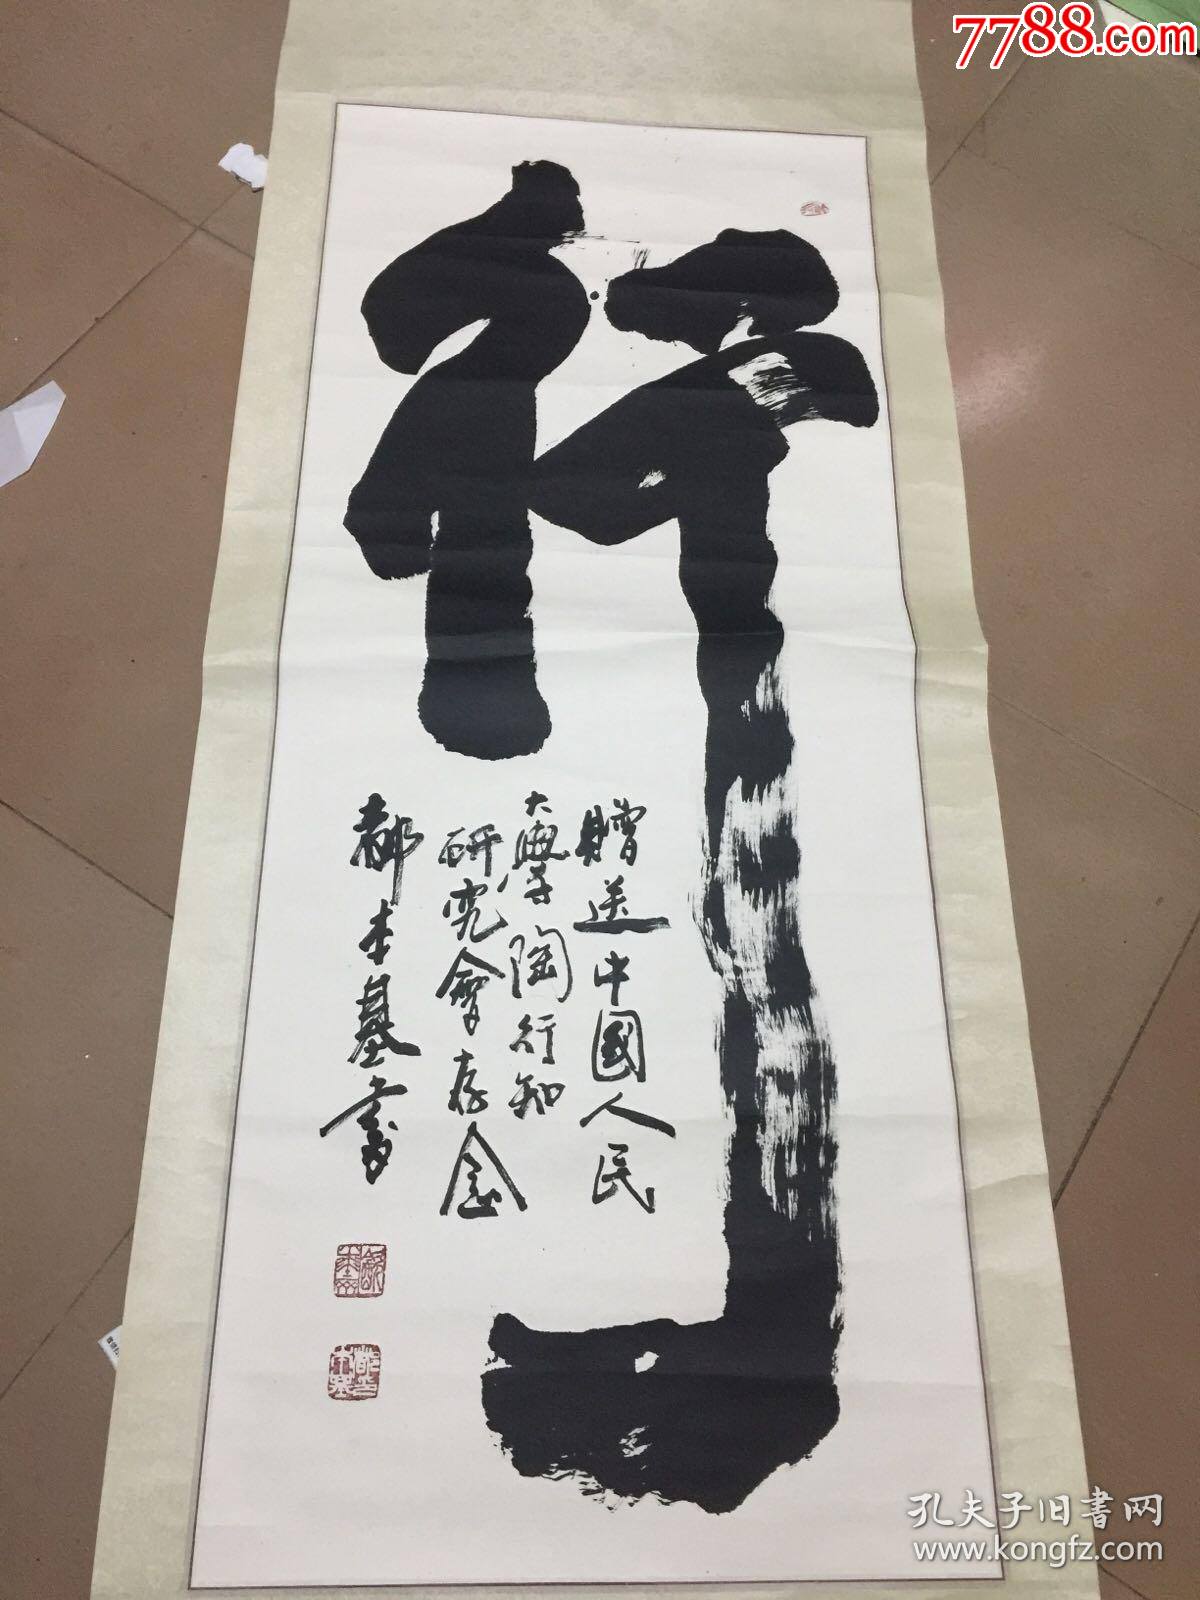 7788.com
行
贈送中國人民
大學陶行知
研究會存念
都本基書
都本基印
孔夫子旧书网
www.kongfz.com